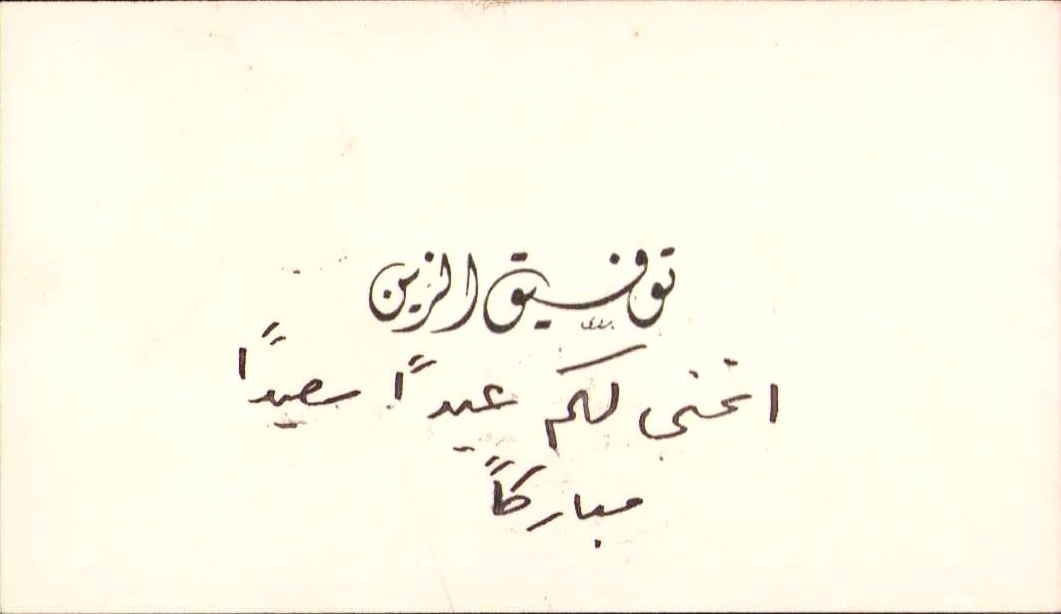 توفيق الزين
اتمنى لكم عيداً سعيداً
مباركاً